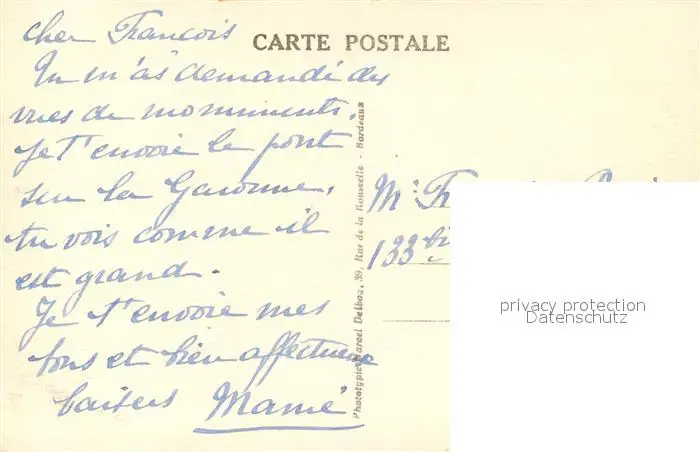 cher Francois
CARTE POSTALE
Tu m'as demandé des
vues de monuments.
Je t'envoie le pont
sur la Garonne,
tu vois comme il
est grand.
Je t'envoie mes
bons et bien affectueux
baisers Mamé
Phototypie Marcel Delboy, 39, Rue de la Rousselle - Bordeaux
Mr
133 bis
privacy protection
Datenschutz